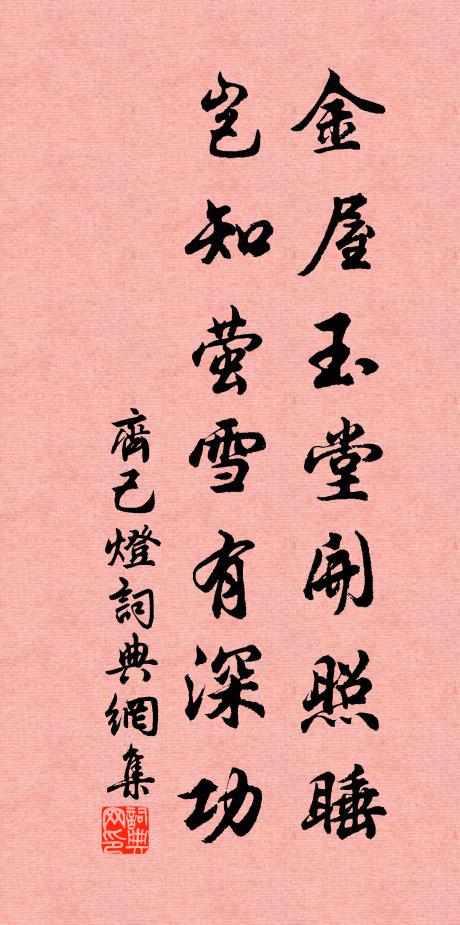 金屋玉堂開照睡
豈知萤雪有深功
齊己燈詞典網集
詞典网印